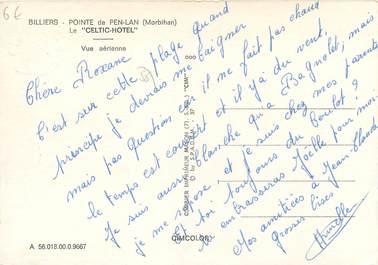 66
BILLIERS - POINTE de PEN-LAN (Morbihan)
Le "CELTIC-HOTEL"
Vue aérienne
Chère Roxane
C'est sur cette plage quand
principe je devrais me baigner
mais pas question car il ne fait pas chaud
le temps est couvert et il y a du vent,
Je suis aussi blanche qu'a Bagnolet, mais
je me repose et je suis chez mes parents
Et toi toujours du boulot?
Tu embrasseras Joëlle pour moi
Mes amitiés à Jean Claude
Grosses bises
COMBIER IMPRIMEUR MACON (71. S.-&-L.) "CIM"
CIMCOLOR
A 56.018.00.0.9667